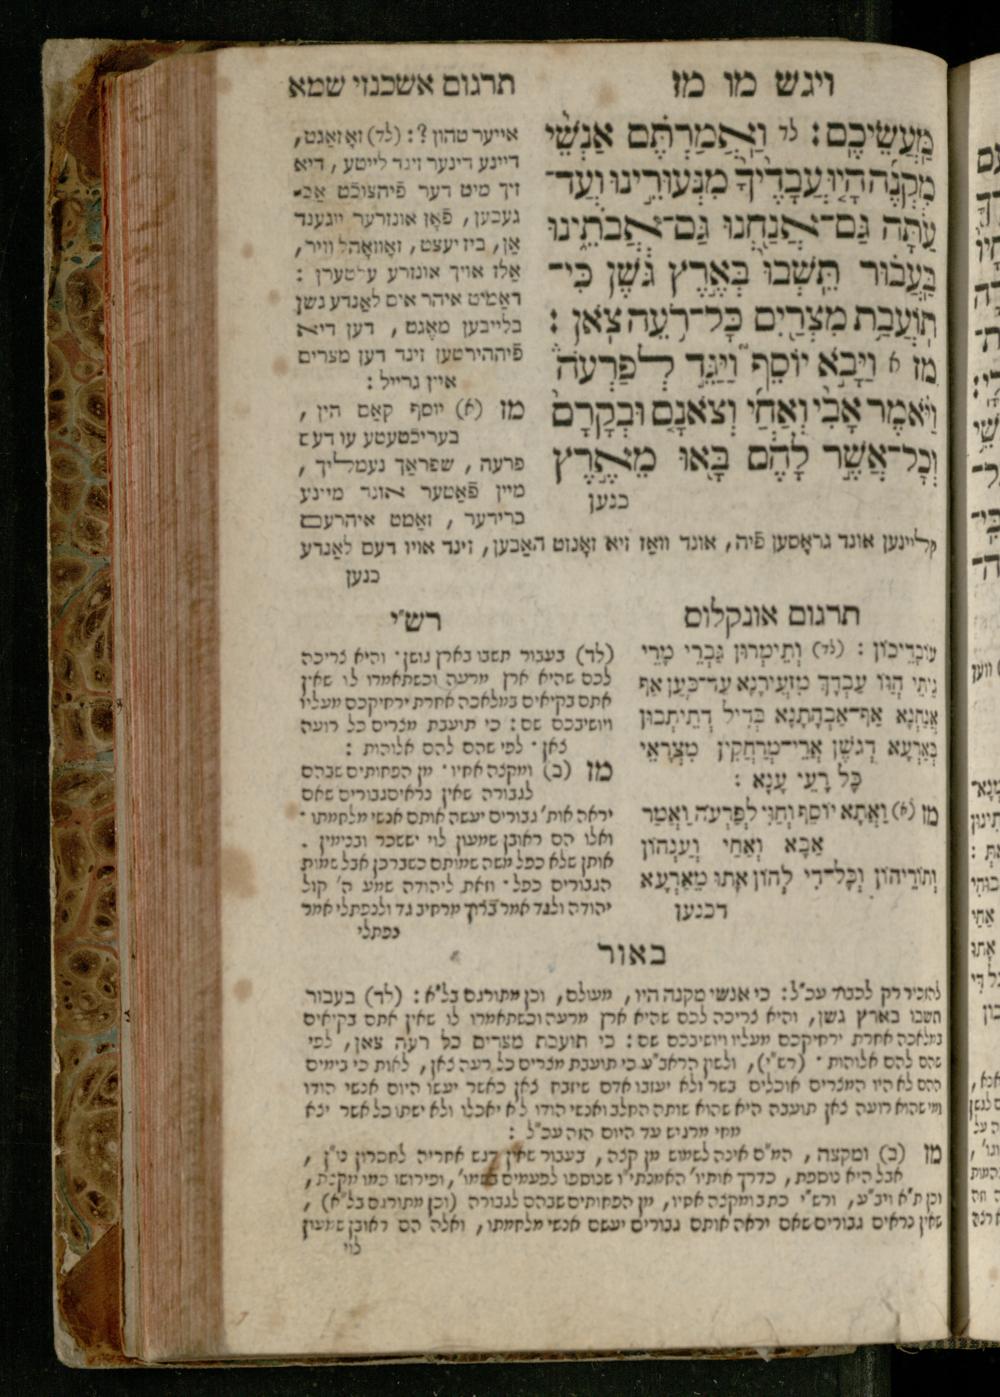 ויגש מו מז
תרגום אשכנזי שמא
מַעֲשֵׂיכֶם׃ לד וַאֲמַרְתֶּם אַנְשֵׁי
מִקְנֶה הָיוּ עֲבָדֶיךָ מִנְּעוּרֵינוּ וְעַד־
עַתָּה גַּם־אֲנַחְנוּ גַּם־אֲבֹתֵינוּ
בַּעֲבוּר תֵּשְׁבוּ בְּאֶרֶץ גֹּשֶׁן כִּי־
תוֹעֲבַת מִצְרַיִם כָּל־רֹעֵה צֹאן׃
מז א וַיָּבֹא יוֹסֵף וַיַּגֵּד לְפַרְעֹה
וַיֹּאמֶר אָבִי וְאַחַי וְצֹאנָם וּבְקָרָם
וְכָל־אֲשֶׁר לָהֶם בָּאוּ מֵאֶרֶץ
כנען
אייער טהון ?: (לד) זאָ זאַגט,
דיינע דינער זינד לייטע, דיא
זיך מיט דער פֿיהצוכֿט אב־
געבען, פֿאָן אונזרער יוגענד
אָן, ביז יעצט, זאָוואָהל וויר,
אַלז אויך אונזרע עלטערן :
דאַמיט איהר אים לאַנדע גשן
בלייבען מאָגט, דען דיא
פֿיההירטען זינד דען מצרים
איין גרייל :
מז (א) יוסף קאַם הין,
בעריכֿטעטע עז דעם
פרעה, שפראַך נעמליך,
מיין פֿאַטער אונד מיינע
ברידער, זאַמט איהרעם
קליינען אונד גראָסען פֿיה, אונד וואַז זיא זאָנזט האַבען, זינד אויז דעם לאַנדע
כנען
תרגום אונקלוס
עוֹבָדֵיכוֹן : (לד) וְתֵימְרוּן גַּבְרֵי מָרֵי
גֵיתֵי הֲווֹ עַבְדָךְ מִזְּעֵירָנָא עַד־כְּעַן אַף
אֲנַחְנָא אַף־אַבְהָתָנָא בְּדִיל דְתֵיתְבוּן
בְּאַרְעָא דְגשֶׁן אֲרֵי־מְרַחֲקִין מִצְרָאֵי
כָּל רָעֵי עָנָא :
מז (א) וַאֲתָא יוֹסֵף וְחַוִּי לְפַרְעֹה וַאֲמַר
אַבָּא וְאַחַי וְעָנְהוֹן
וְתוֹרֵיהוֹן וְכָל־דִי לְהוֹן אֲתוֹ מֵאַרְעָא
דכנען
רש״י
(לד) בעבור תשבו בארץ גושן · והיא צריכה
לכם שהיא ארץ מרעה וכשתאמרו לו שאין
אתם בקיאים במלאכה אחרת ירחיקכם מעליו
ויושיבכם שם : כי תועבת מצרים כל רועה
צאן · לפי שהם להם אלוהות :
מז (ב) ומקצה אחיו · מן הפחותים שבהם
לגבורה שאין נראים גבורים שאם
יראה אות׳ גבורים יעשה אותם אנשי מלחמתו ·
ואלו הם ראובן שמעון לוי יששכר ובנימין .
אותן שלא כפל משה שמותם כשברכן אבל שמות
הגבורים כפל · וזאת ליהודה שמע ה׳ קול
יהודה ולגד אמר ברוך מרחיב גד ולנפתלי אמר
נפתלי
באור
להזכיר רק לכבוד עכ״ל : כי אנשי מקנה היו, מעולם, וכן מתורגם בל״א : (לד) בעבור
תשבו בארץ גשן, והיא צריכה לכם שהיא ארץ מרעה וכשתאמרו לו שאין אתם בקיאים
במלאכה אחרת ירחיקכם מעליו ויושיבכם שם : כי תועבת מצרים כל רעה צאן, לפי
שהם להם אלוהות · (רש״י), ולשון הראב״ע כי תועבת מצרים כל רעה צאן, לאות כי בימים
ההם לא היו המצרים אוכלים בשר ולא יעזבו אדם שיזבח צאן כאשר יעשו היום אנשי הודו
ומי שהוא רועה צאן תועבה היא שהוא שותה החלב ואנשי הודו לא יאכלו ולא ישתו כל אשר יצא
מחי מרגיש עד היום הזה עכ״ל :
מז (ב) ומקצה, המ״ם אינה לשמוש מן קצה, בעבור שאין דגש אחריה לחסרון נו״ן ,
אבל היא נוספת, כדרך אותיו׳ האמנתי״ו שנוספו לפעמים בשמו׳, ופירושו כמו מקצת,
וכן ת״א ויב״ע, ורש״י כתב ומקצה אחיו, מן הפחותים שבהם לגבורה (וכן מתורגם בל״א) ,
שאין נראים גבורים שאם יראה אותם גבורים יעשם אנשי מלחמתו, ואלה הם ראובן שמעון
לוי